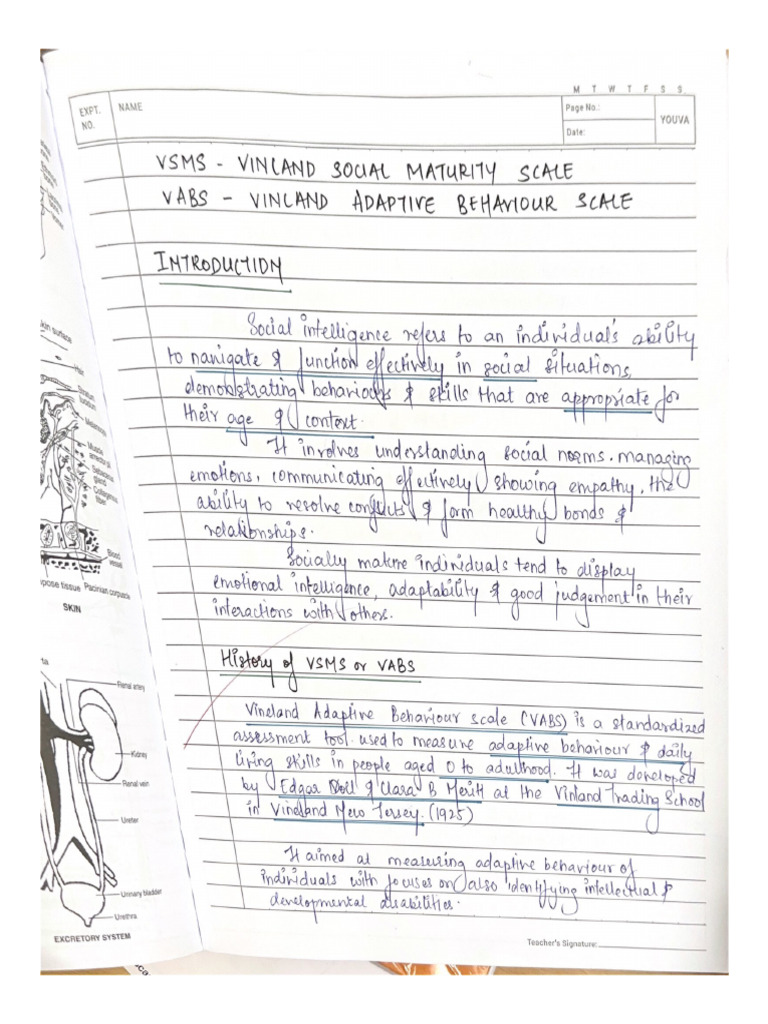 M T W T F S S
EXPT. NO.
NAME
Page No.:
Date:
YOUVA
VSMS - VINLAND SOCIAL MATURITY SCALE
VABS - VINLAND ADAPTIVE BEHAVIOUR SCALE
INTRODUCTION
Social intelligence refers to an individual's ability
to navigate & function effectively in social situations,
demonstrating behaviours & skills that are appropriate for
their age & context.
It involves understanding social norms, managing
emotions, communicating effectively, showing empathy, the
ability to resolve conflicts & form healthy bonds &
relationships.
Socially mature individuals tend to display
emotional intelligence, adaptability & good judgement in their
interactions with others.
History of VSMS or VABS
Vineland Adaptive Behaviour scale (VABS) is a standardized
assessment tool used to measure adaptive behaviour & daily
living skills in people aged 0 to adulthood. It was developed
by Edgar Doll & Clara B Meritt at the Vinland Trading School
in Vineland New Jersey. (1925)
It aimed at measuring adaptive behaviour of
individuals with focuses on also identifying intellectual &
developmental disabilities.
Teacher's Signature:
kin surface
Hair
Stratum
Melanocyte
Muscle
Sebaceous
gland
Collagenous
fiber
Blood
vessel
pose tissue Pacinian corpuscle
SKIN
Renal artery
Kidney
Renal vein
Ureter
Urinary bladder
Urethra
EXCRETORY SYSTEM